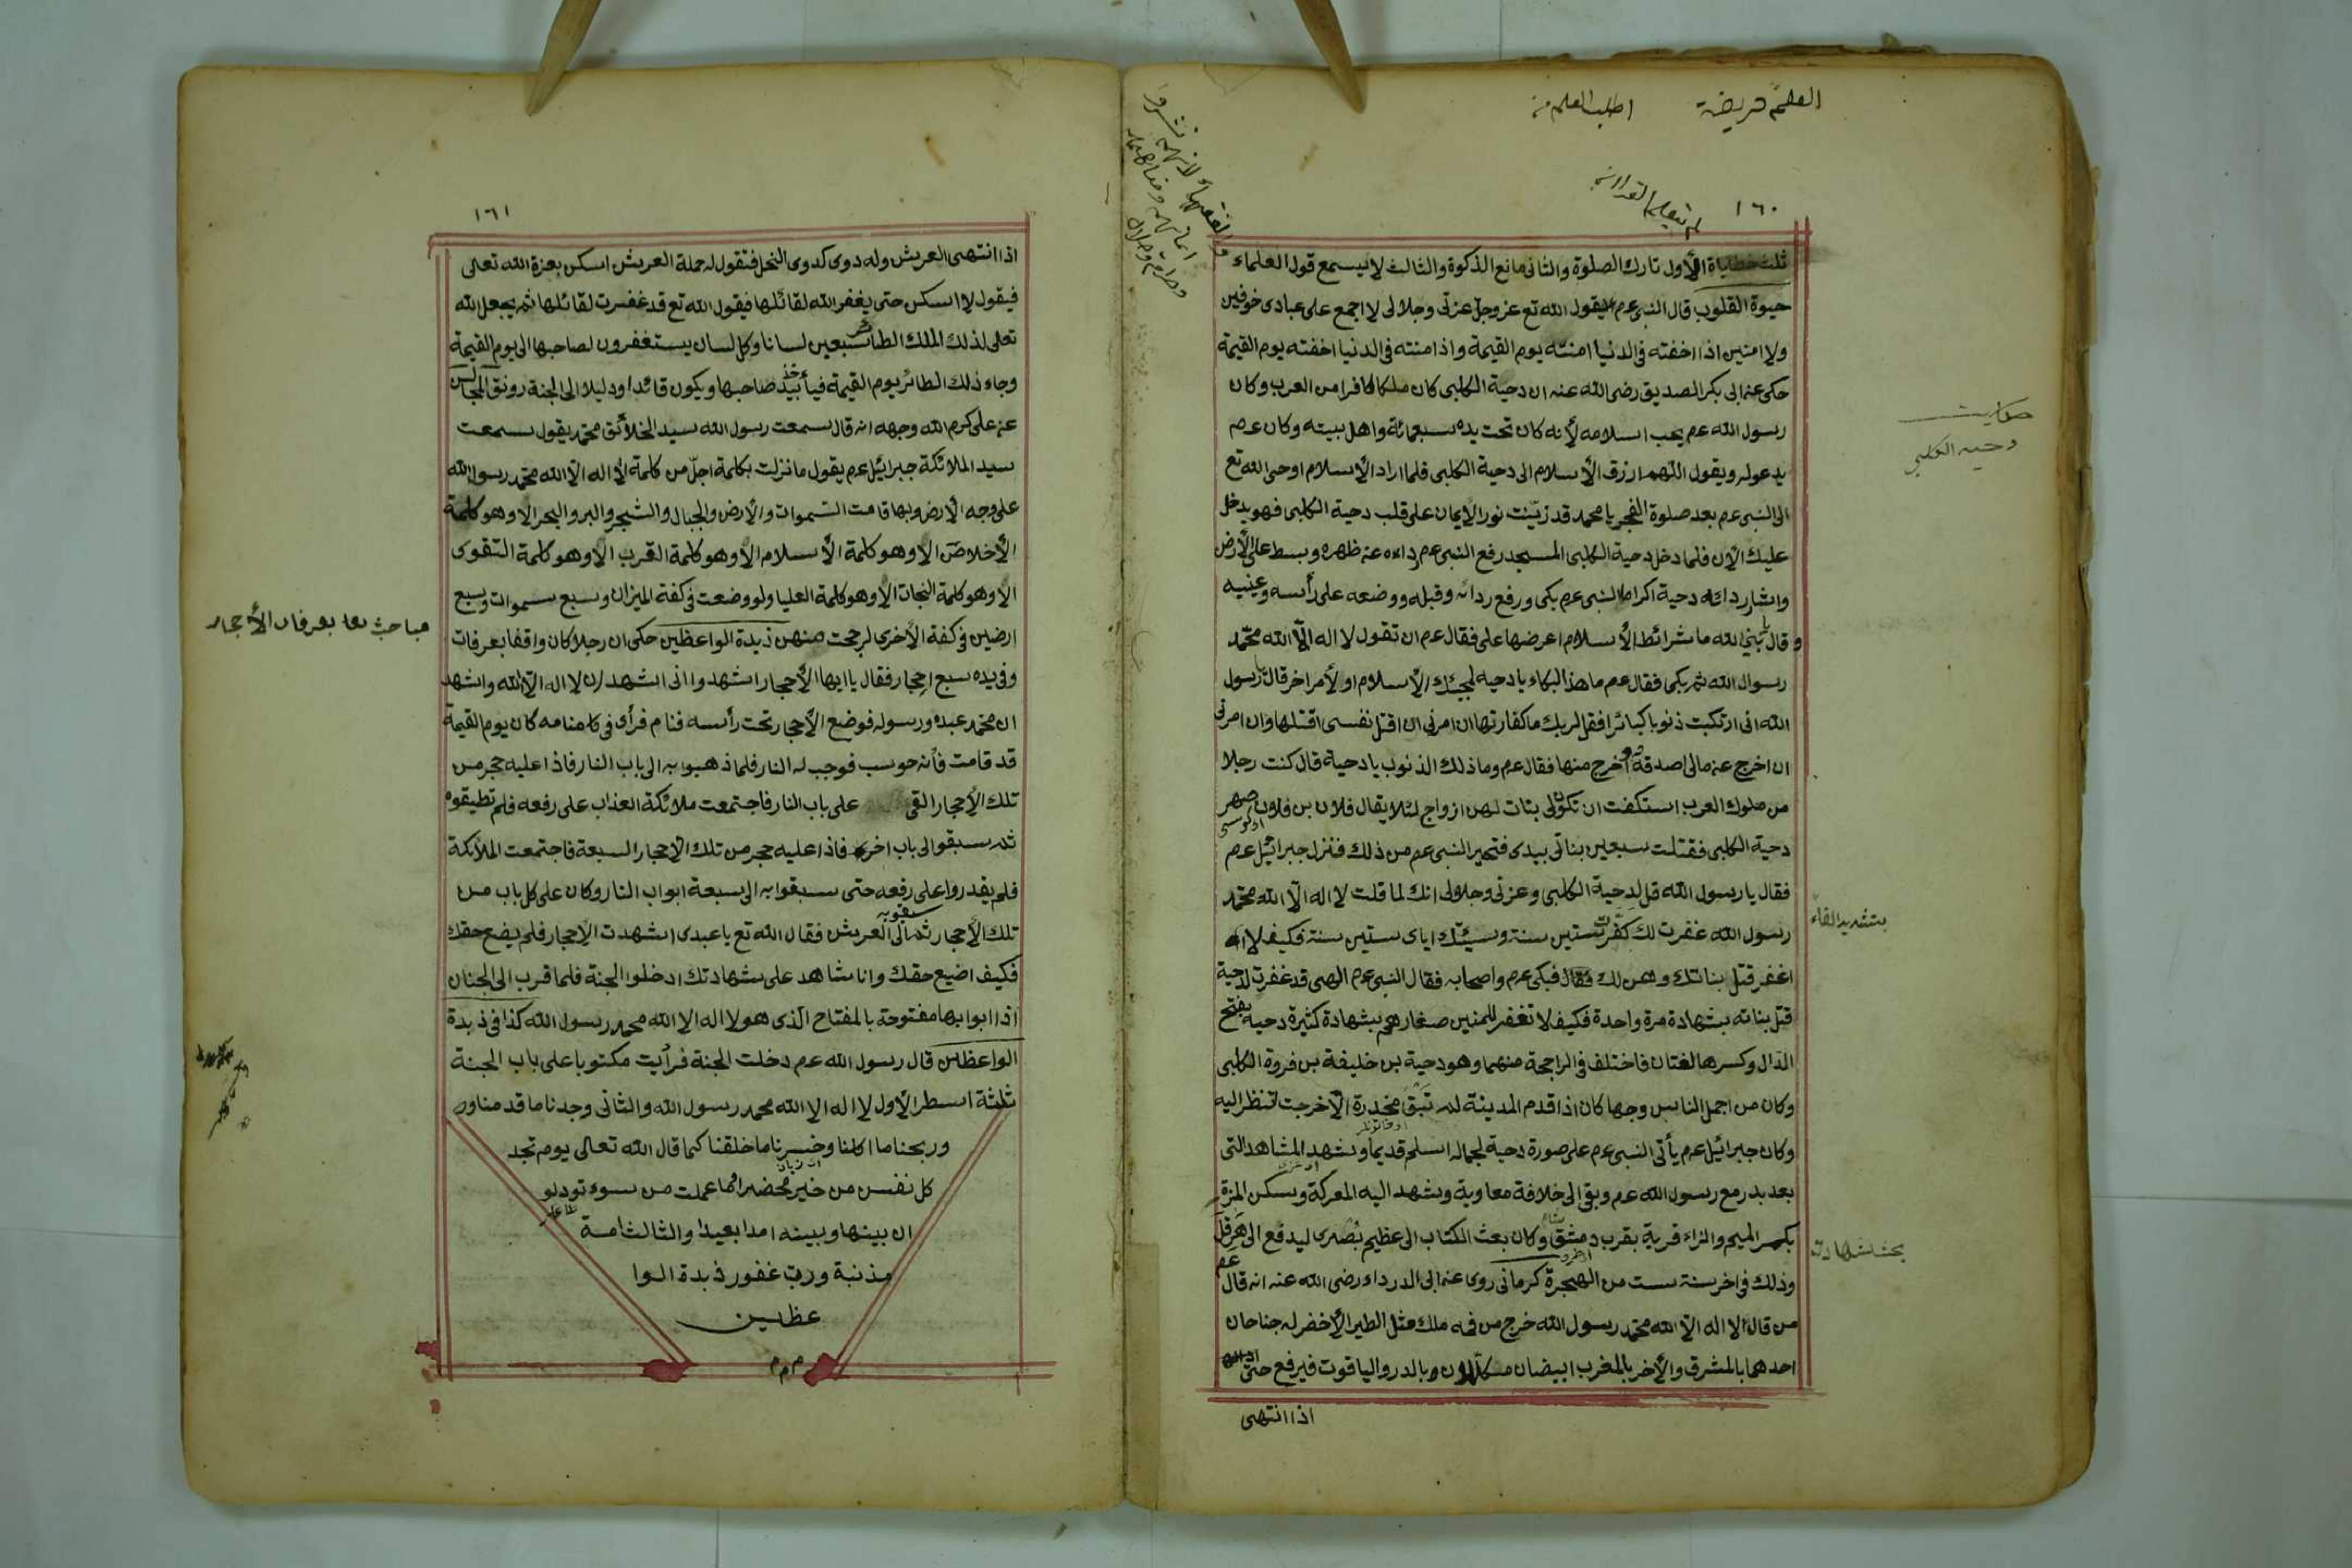 ١٦٠
ثلث خطاياة الأول تارك الصلوة والثانى مانع الذكوة والثالث لا يسمع قول العلماء
حيوة القلوب قال النبى عم يقول الله تع عز وجل عزتى وجلالى لا اجمع على عبادى خوفين
ولا امنين اذا اخفته فى الدنيا امنته يوم القيمة واذا منته فى الدنيا اخفته يوم القيمة
حكى عن ابى بكر الصديق رضى الله عنه ان دحية الكلبى كان ملكا كافرا من العرب وكان
رسول الله عم يحب اسلامه لأنه كان تحت يده سبعمائة واهل بيته وكان عم
يدعوله ويقول اللهم ارزق الأسلام الى دحية الكلبى فلما اراد الأسلام اوحى الله تع
الى النبى عم بعد صلوة الفجر يا محمد قد زيّنت نور الأيمان على قلب دحية الكلبى فهو يدخل
عليك الآن فلما دخل دحية الكلبى المسجد رفع النبى عم رداءه عن ظهره وبسط على الأرض
واشار ردائه دحية اكراما النبى عم بكى ورفع ردائه وقبله ووضعه على رأسه وعنييه
وقال يا نبىّ الله ما شرائط الأسلام اعرضها على فقال عم ان تقول لا اله الّا الله محمّد
رسول الله ثم بكى فقال عم ما هذا البكاء يا دحيه لمجيئك الأسلام او لأمر اخر قال يا رسول
الله انى ارتكبت ذنوبا كبائرا فقل لربك ما كفارتها ان امرنى ان اقتل نفسى اقتلها وان امرنى
ان اخرج عن مالى اصدقة اخرج منها فقال عم وما ذلك الذنوب يا دحية قال كنت رجلا
من ملوك العرب استكفت ان تكون لى بنات لهن ازواج لئلا يقال فلان بن فلان صهر
دحية الكلبى فقتلت سبعين بناتى بيدى فتحير النبى عم من ذلك فنزل جبرائيل عم
فقال يا رسول الله قل لدحية الكلبى وعزتى وجلالى انك لما قلت لا اله الّا الله محمّد
رسول الله غفرت لك كفّرت ستين سنة وسيئتك اياى ستين سنة فكيف لا
اغفر قتل بناتك وهن لك فقال فبكى عم واصحابه فقال النبى عم الهى قد غفرت لدحية
قتل بناته بشهادة مرة واحدة فكيف لا تغفر للمنين صغارهم بشهادة كثيرة دحية بفتح
الدال وكسرها لغتان فاختلف فى الراجحة منهما وهو دحية بن خليفة بن فروة الكلبى
وكان من اجمل الناس وجها كان اذا قدم المدينة لم تبق مخدرة الّا خرجت لتنظر اليه
وكان جبرائيل عم يأتى النبى عم على صورة دحية لجماله اسلم قديما وشهد المشاهد التى
بعد بدر مع رسول الله عم وبقى الى خلافة معاوية وشهد اليه المعركة وسكن المزة
بكسر الميم والزاء قرية بقرب دمشق وكان بعث الكتاب الى عظيم بُصْرى ليدفع الى هرقل
وذلك فى اخر سنة ست من الهجرة كرمانى روى عن ابى الدرداء رضى الله عنه انه قال عم
من قال لا اله الّا الله محمّد رسول الله خرج من فمه ملك مثل الطير الأخضر له جناحان
احدهما بالمشرق والأخر بالمغرب ابيضان مكللون بالدر والياقوت فيرفع حتى
اذا انتهى
حكايت
دحيه الكلبى
بتشديد الفاء
بحث شهادت
١٦١
اذا انتهى العرش وله دوى كدوى النحل فتقول له حملة العرش اسكن بعزة الله تعالى
فيقول لا اسكن حتى يغفر الله لقائلها فيقول الله تع قد غفرت لقائلها ثم يجعل الله
تعالى لذلك الملك الطائر سبعين لسانا وكل لسان يستغفرون لصاحبها الى يوم القيمة
وجاء ذلك الطائر يوم القيمة فيأخذ بيد صاحبها ويكون قائدا ودليلا الى الجنة رونق المجالس
عن على كرم الله وجهه انه قال سمعت رسول الله سيد الخلائق محمّد يقول سمعت
سيد الملائكة جبرائيل عم يقول ما نزلت بكلمة اجلّ من كلمة لا اله الّا الله محمّد رسول الله
على وجه الأرض وبها قامت السموات والأرض والجبال والشجر والبر والبحر الا وهو كلمة
الأخلاص الا وهو كلمة الأسلام الا وهو كلمة القرب الا وهو كلمة التقوى
الا وهو كلمة النجات الا وهو كلمة العليا ولو وضعت فى كفة الميزان وسبع سموات وسبع
ارضين فى كفة الأخرى لرجحت منهن ذبدة الواعظين حكى ان رجلا كان واقفا بعرفات
وفى يده سبع احجار فقال يا ايها الأحجار اشهدوا انى اشهد ان لا اله الّا الله واشهد
ان محمّد عبده ورسوله فوضع الأحجار تحت رأسه فنام فرأى فى منامه كان يوم القيمة
قد قامت فأنه حوسب فوجب له النار فلما ذهبوا به الى باب النار فاذا عليه حجر من
تلك الأحجار القى على باب النار فاجتمعت ملائكة العذاب على رفعه فلم تطيقوه
ثم سبقوا الى باب اخر فاذا عليه حجر من تلك الأحجار السبعة فاجتمعت الملائكة
فلم يقدروا على رفعه حتى سبقوا به الى سبعة ابواب النار وكان على كل باب من
تلك الأحجار ثم سبقوبه الى العرش فقال الله تع يا عبدى اشهدت الأحجار فلم يضع حقك
فكيف اضيع حقك وانا شاهد على شهادتك ادخلوا الجنة فلما قرب الى الجنان
اذا ابوابها مفتوحة بالمفتاح الذى هو لا اله الا الله محمد رسول الله كذا فى ذبدة
الواعظين قال رسول الله عم دخلت الجنة فرأيت مكتوبا على باب الجنة
ثلثة اسطر الأول لا اله الا الله محمد رسول الله والثانى وجدنا ما قدمنا و
وربحنا ما اكلنا وخسرنا ما خلقنا كما قال الله تعالى يوم تجد
كل نفس من خير محضرا وما عملت من سوء تود لو
ان بينها وبينه امدا بعيدا والثالث امة
مذنبة وربّ غفور ذبدة الوا
عظين
م م م
مباحث بعرفات الأحجار